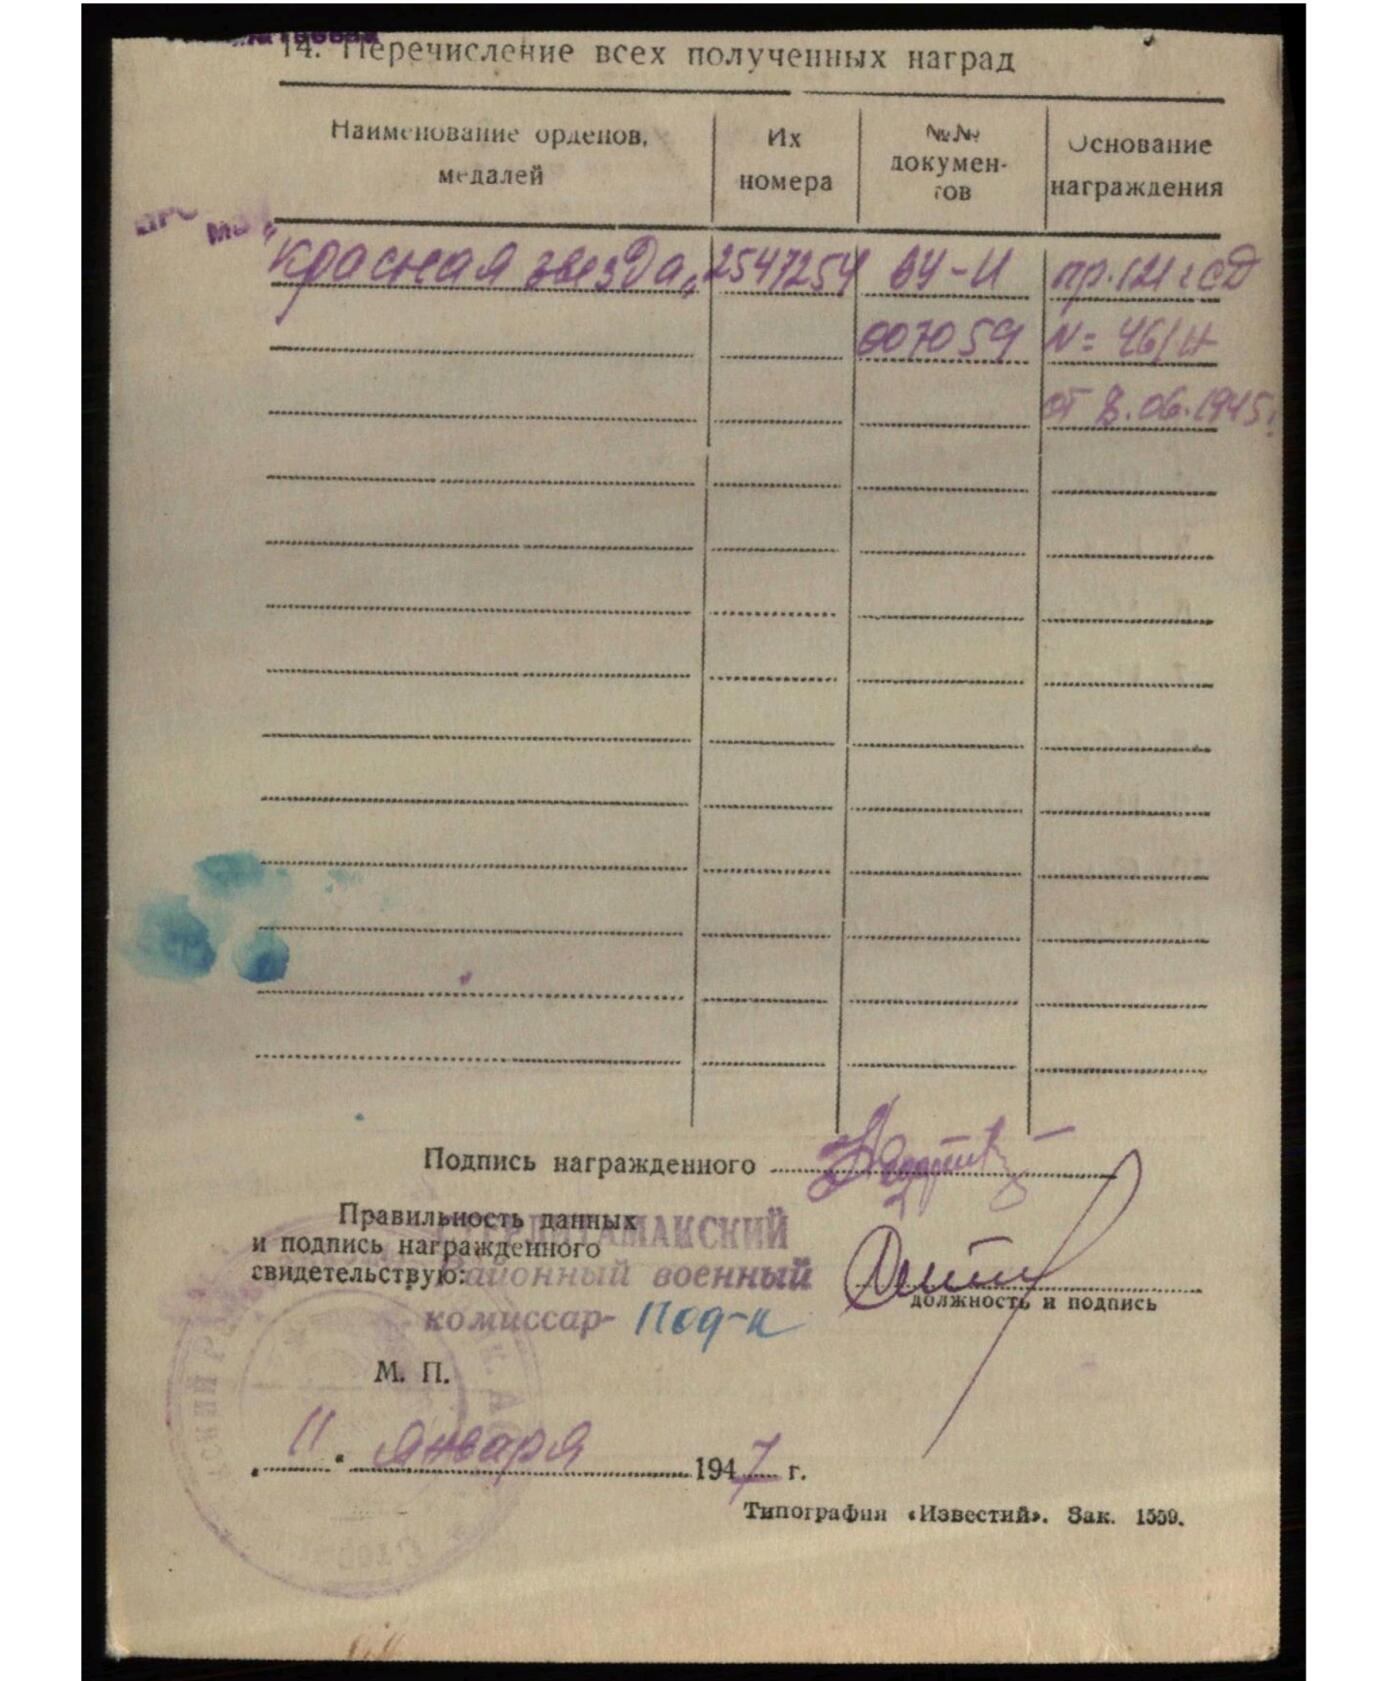 14. Перечисление всех полученных наград
Наименование орденов, медалей
Их номера
№№ документов
Основание награждения
"Красная звезда" 2547254 ВУ-И пр. 121 гСД
007059 N= 46/Н
от 8.06.1945г
Подпись награжденного
Правильность данных
и подпись награжденного
свидетельствую:
СТЕРЛИТАМАКСКИЙ
районный военный
комиссар- Под-к
должность и подпись
М. П.
11. января 1947 г.
Типография «Известий». Зак. 1559.